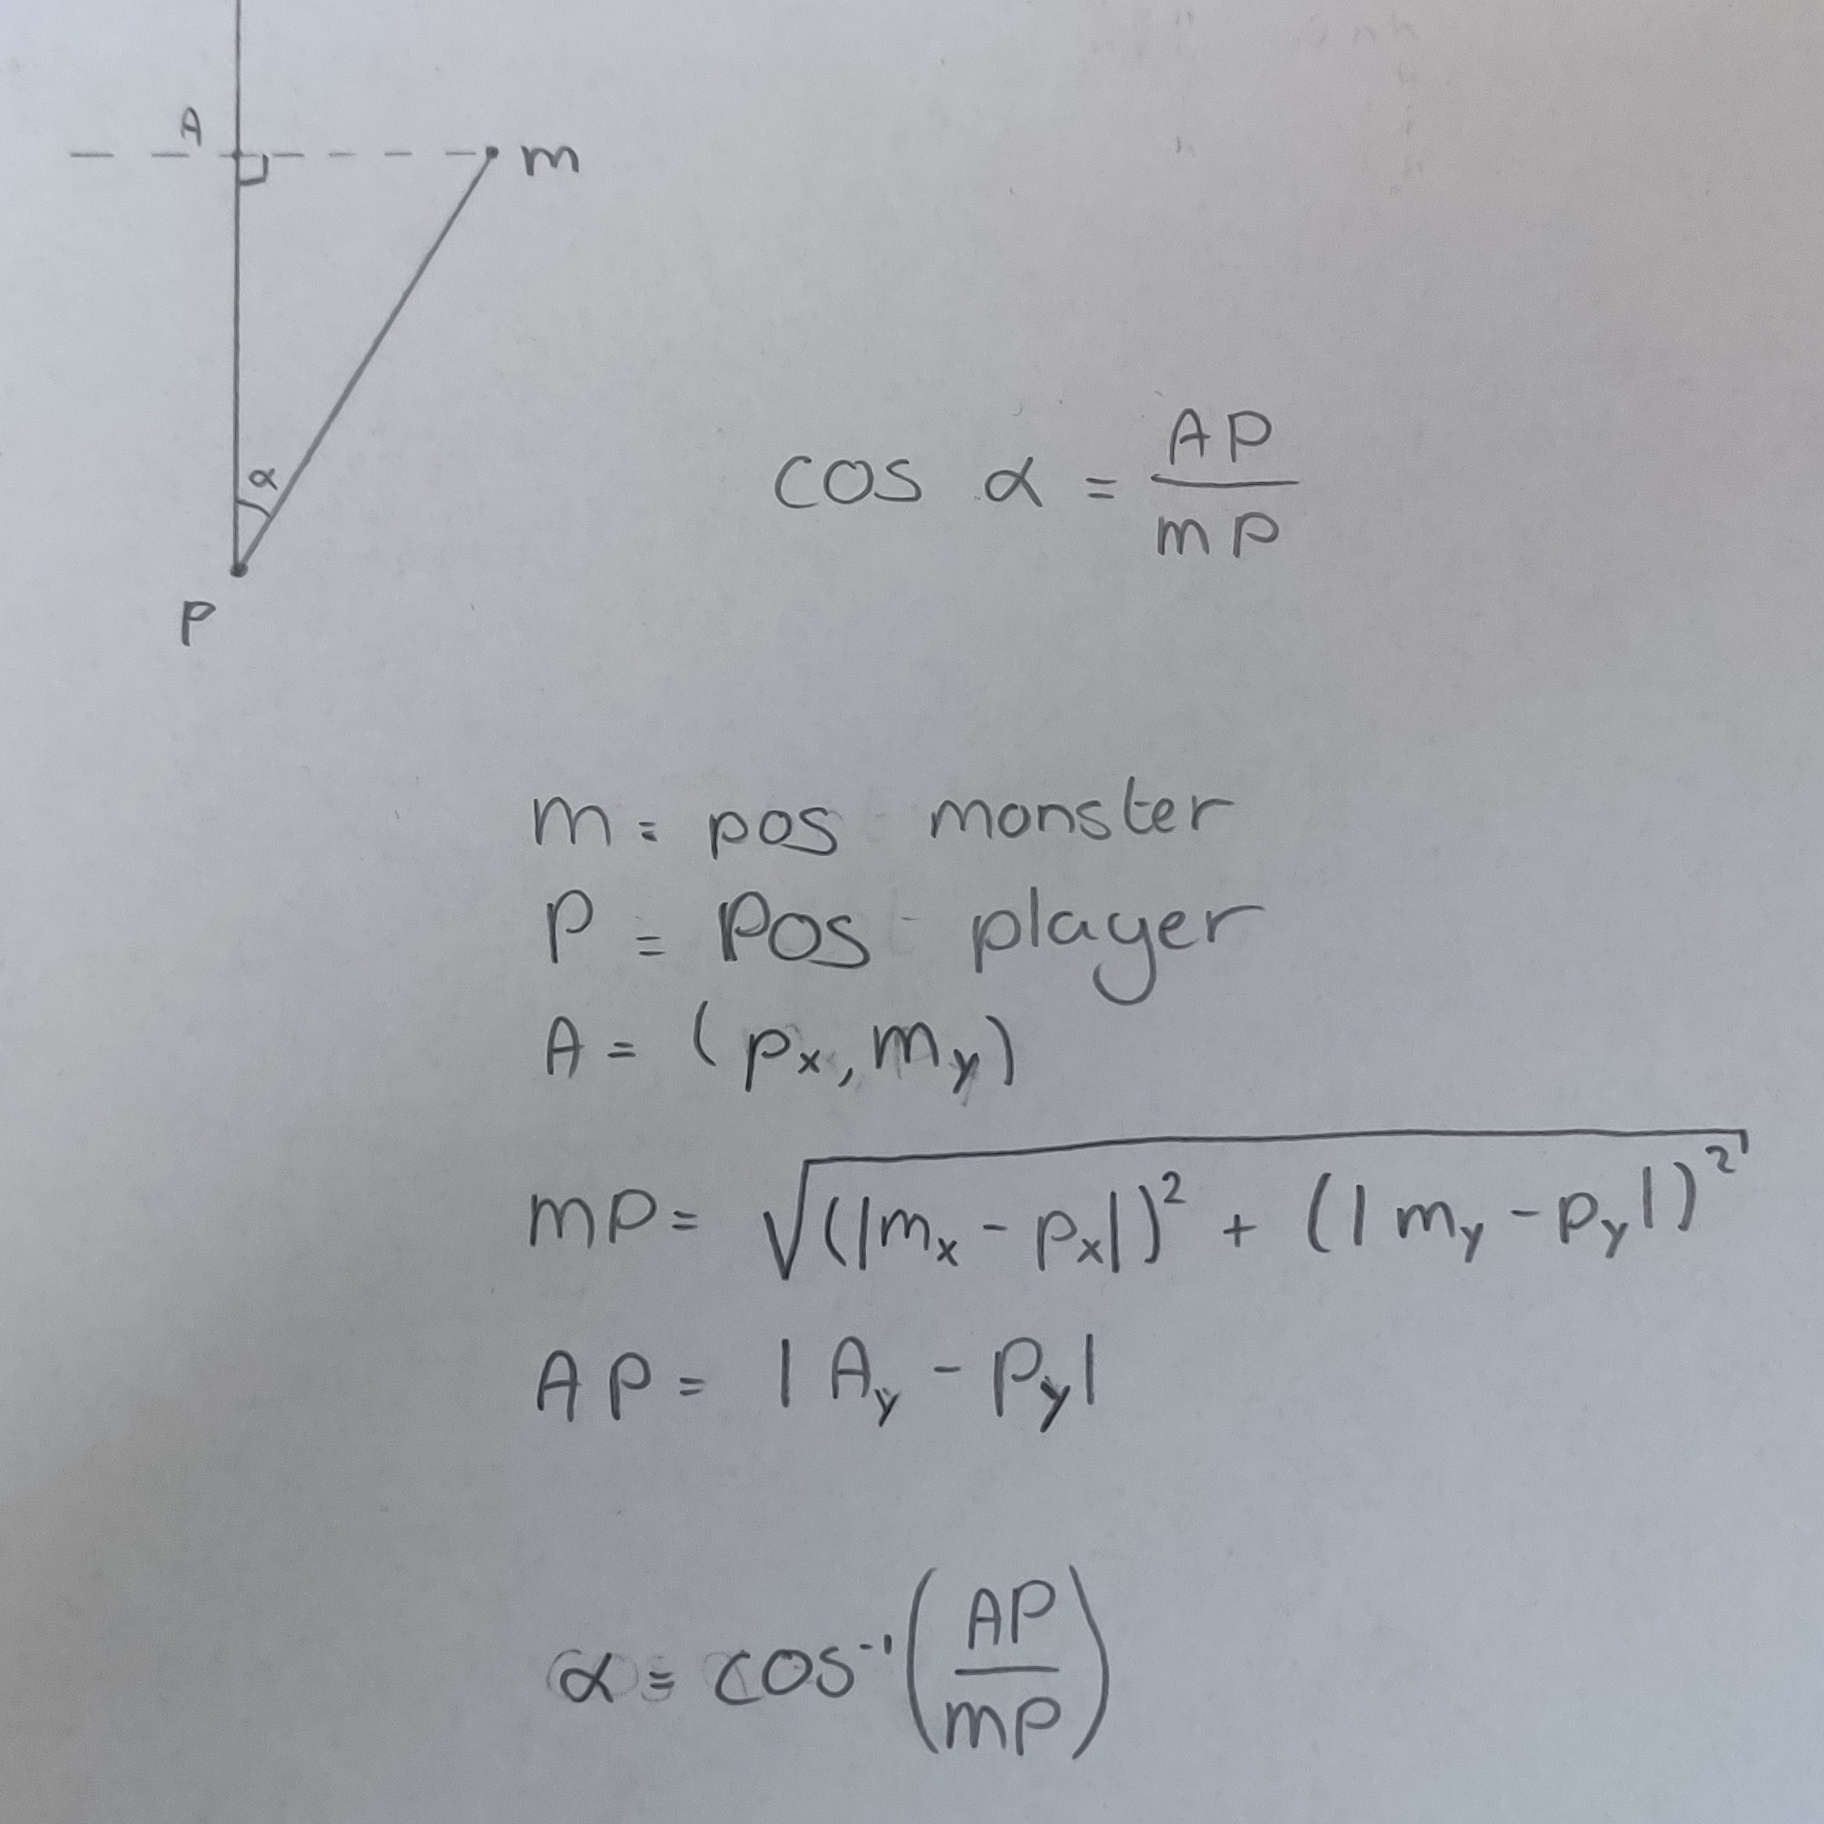 A
m
α
P
cos α = AP/mP
m = pos monster
P = Pos - player
A = (px, my)
mP = √((|mx - px|)² + (|my - py|)²)
AP = |Ay - Py|
α = cos⁻¹(AP/mP)